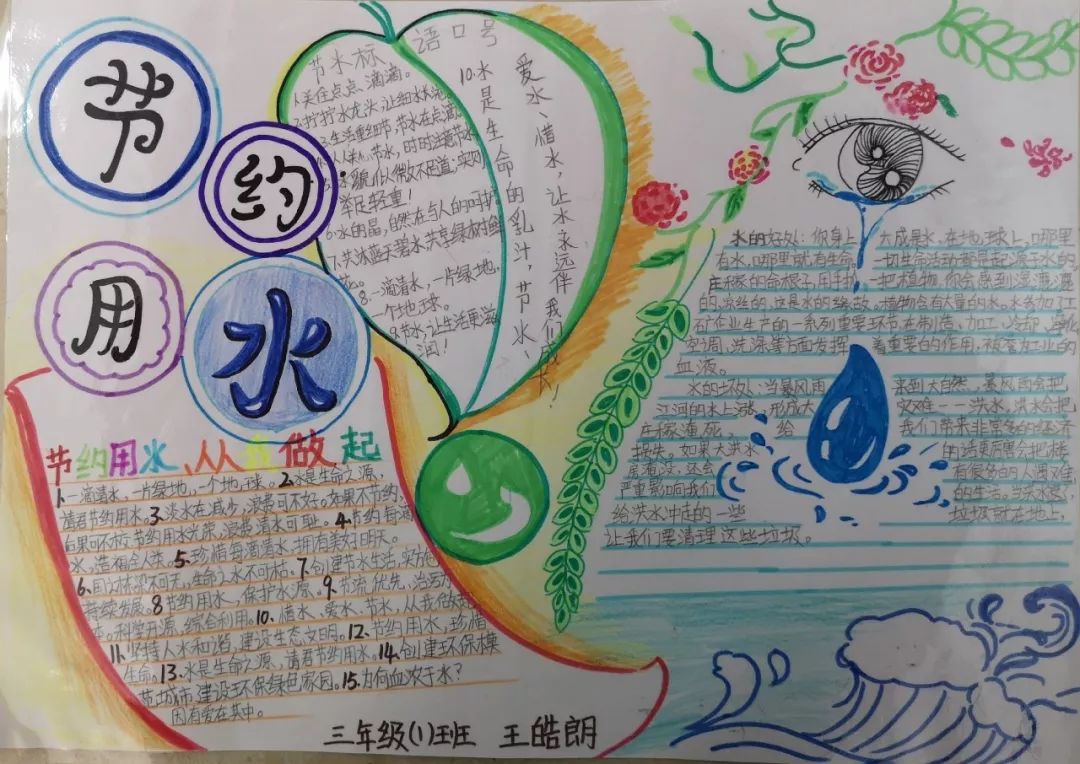 节
约
用
水
节水标语口号
1.关住点点、滴滴。
2.拧拧水龙头,让细水
3.生活重细节,节水在点滴
人人关心节水,时时注意节水
貌似微不足道,实则
举足轻重!
6.水的晶,自然在与人的呵护
7.共沐蓝天碧水共享绿树
8.一滴清水,一片绿地,
一个地球。
9.节水,让生活更滋
润!
10.水是生命的乳汁,节水、
爱水、惜水,让水永远伴我们成长!
节约用水,从我做起
1.一滴清水,一片绿地,一个地球。2.水是生命之源,
请君节约用水。3.淡水在减少,浪费可不好。如果不节约,
后果可不妙。节约用水光荣,浪费清水可耻。4.节约每滴
水,造福全人类。5.珍惜每滴清水,拥有美好明天。
6.国之栋梁不可夭,生命之水不可枯。7.创建节水生活,实施
持续发展。8.节约用水,保护水源。9.节流优先,治污为
本。科学开源,综合利用。10.惜水、爱水、节水,从我做起
11.坚持人水和谐,建设生态文明。12.节约用水,珍惜
生命。13.水是生命之源,请君节约用水。14.创建环保模
范城市,建设环保绿色家园。15.为何血浓于水?
因有爱在其中。
水的好处:你身上 大成是水,在地球上,哪里
有水,哪里就有生命。 一切生命活动都是起源于水的,
庄稼的命根子,用手 把植物,你会感到湿漉漉
的,凉丝的,这是水的缘故。植物含有大量的水。水参加了工
矿企业生产的一系列重要环节,在制造、加工、冷却、净化
空调、洗涤等方面发挥 着重要的作用,被誉为工业的
血液。
水的坏处:当暴风雨 来到大自然,暴风雨会把
江河的水上涨,形成大 灾难——洪水,洪水会把
庄稼淹死, 给 我们带来非常多的经济
损失。如果大洪水 的话更厉害会把楼
房淹没,还会 有很多的人遇难
严重影响我们 的生活。当洪水
给洪水冲走的一些 垃圾就在地上,
让我们要清理这些垃圾。
三年级(1)班 王皓朗